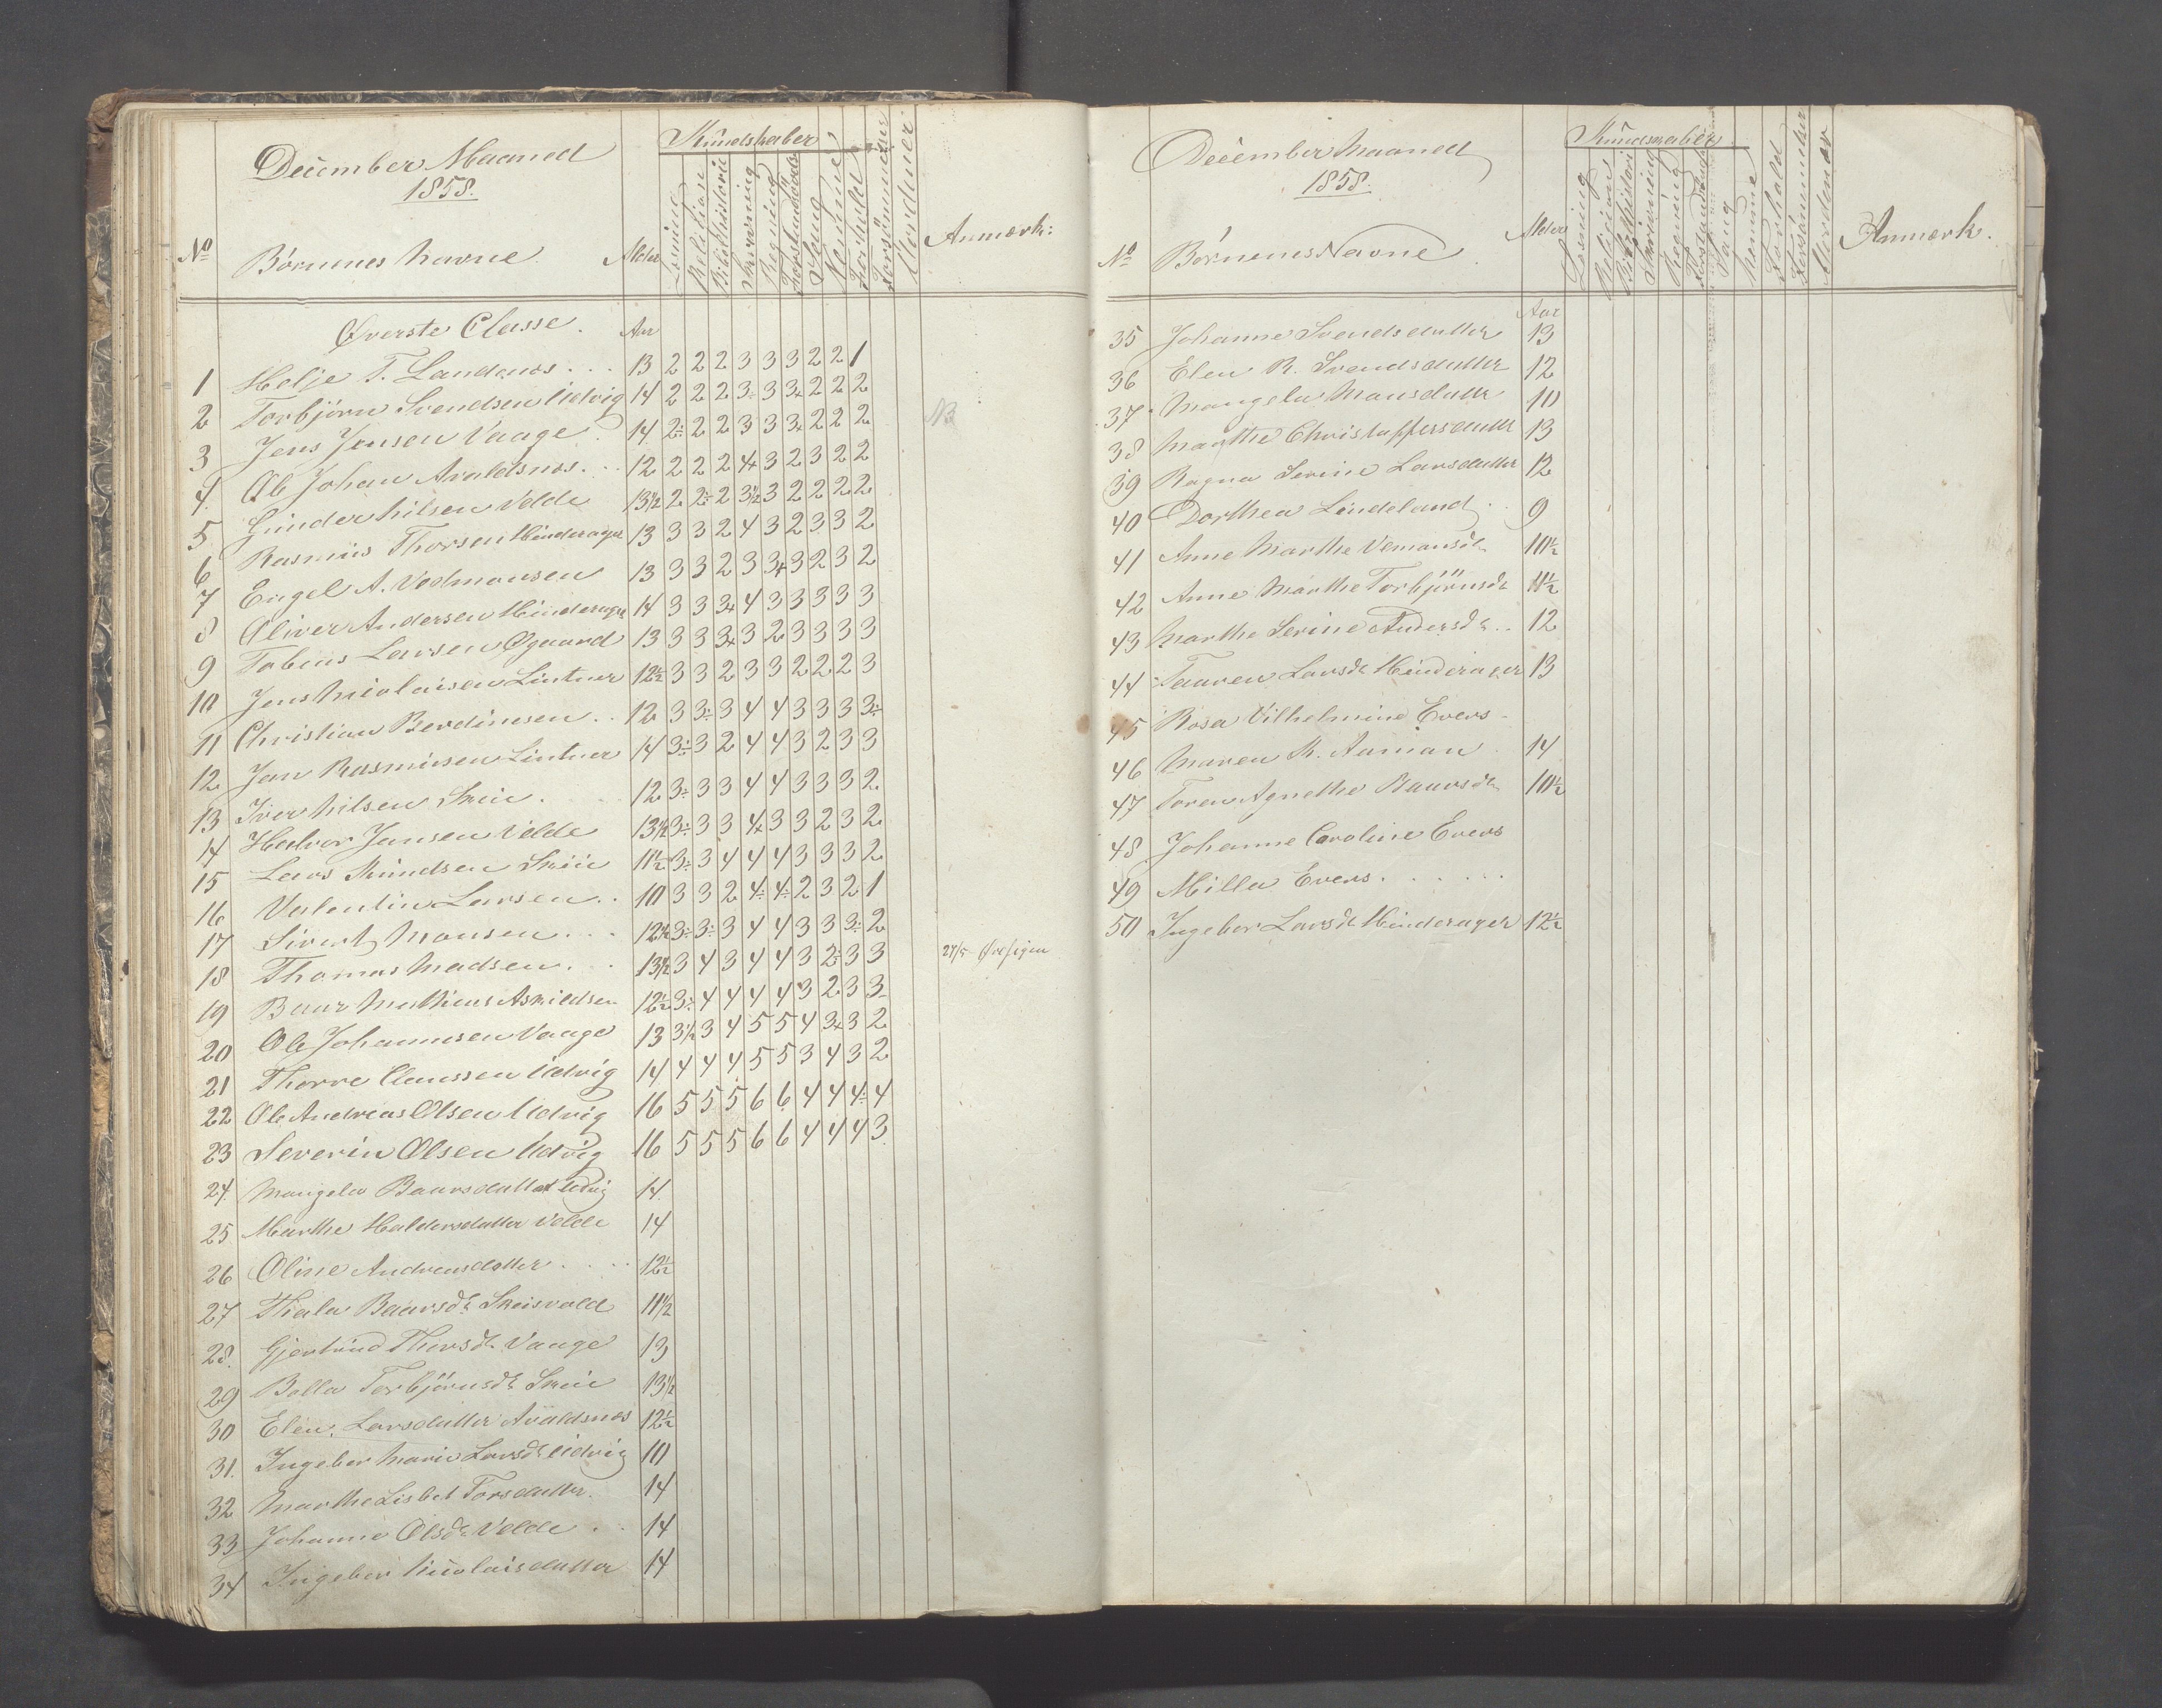 December Maaned
1858.
Kundskaber
No Børnenes Navne. Alder Læsning Religion Bibelhistorie Skrivning Regning Forstandsøvels Sang Nemme Forhold Forsømmelser Anmærk:
Øverste Classe. Aar
1 Helje T. Landanos . . . 13 2 2 2 3 3 3 2 2 1
2 Torbjörn Svendsen Udvig 14 2 2 2 3÷ 3 3+ 2 2 2
3 Jens Jensen Vaage . 14 2÷ 2 2 3 3 3+ 2 2 2
4. Ole Johan Avaldsnæs. . . 12 2 2 2 4+ 3 2 3 2 2
5 Gunder Nilsen Velde 13½ 2 2÷ 2 3½ 3 2 2 2 2
6 Rasmus Thorsen Hinderager 13 3 3 2 4 3 2 3 3 2
7 Engel A. Vedmansen 13 3 3 2 3 3+ 3 2 3 2
8 Oliver Andersen Hinderager 14 3 3 3+ 4 3 3 3 3 3
9 Tobias Larsen Øgaard 13 3 3 3+ 3 2 3 3 3 3
10 Jens Nicolaisen Lintner 12½ 3 3 2 3 3 2 2 2 3
11 Christian Berdinesen . . 12 3 3÷ 3 4 4 3 3 3 3÷
12 Jan Rasmusen Lintner 14 3÷ 3 2 4 4 3 2 3 3
13 Iver Nilsen Skeie . 12 3÷ 3 3 4 4 3 3 3 2
14 Halvor Jansen Velde 13½ 3÷ 3 3 4+ 3 3 2 3 2
15 Lars Knudsen Skeie 11½ 3÷ 3 4 4 4 3 3 3 2
16 Valentin Larsen . . 10 3 3 2 4÷ 4÷ 2 3 2 1
17 Sivert Monsen . . . 12½ 3÷ 3÷ 3 4 4 3 3 3÷ 2
18 Thomas Madsen. . . 13½ 3 4 3 4 4 3 2÷ 3 3
19 Baar Mathias Askildsen 12½ 3÷ 4 4 4 4 3 2 3 3
20 Ole Johannesen Vaage 13 3½ 3 4 5 5 4 3+ 3 2
21 Thorre Claussen Udvig 14 4 4 4 5 5 3 4 3 2
22 Ole Andreas Olsen Udvig 16 5 5 5 6 6 4 4 4÷ 4
23 Severin Olsen Udvig 16 5 5 5 6 6 4 4 4 3
24. Mangela Baarsdatter Udvig 14.
25 Marthe Haldorsdatter Velde 14
26 Oline Andreasdatter . . . . 12½
27 Thala Baarsdr Skeisvold 11½
28. Gjertrud Thorsdr Vaage 13
29 Bolla Torbjörnsdr Skeie 13½
30 Elen Larsdatter Avaldsnæs 12½
31. Ingebor Marie Larsdr Udvig 10
32 Marthe Lisbet Torsdatter. 14
33 Johanne Olsdr Velde . . 14
34 Ingebor Nicolaisdatter 14
December Maaned
1858.
Kundskaber
No Børnenes Navne Alder Læsning Religion Bibelhistori Skrivning Regning Sang Nemme Forhold Forsömmelser Anmærk.
Aar
35 Johanne Svendsdatter 13
36 Elen R. Svendsdatter 12
37 Mangela Mansdatter 10
38 Marthe Christoffersdatter 13
39 Ragna Serine Larsdatter 12
40 Dorthea Lindeland . . 9
41 Anne Marthe Vemansdr 11½
42 Anne Marthe Torbjörnsdr 11½
43 Marthe Serine Andersdr . . 12
44 Taaren Larsdr Hinderager 13
45 Rosa Vilhelmine Evers
46 Maren K. Aaman 14
47 Toren Agnethe Baarsdr 10½
48 Johanne Caroline Evers
49 Milla Evers . . . . . .
50 Ingebor Larsdr Hinderager 12½